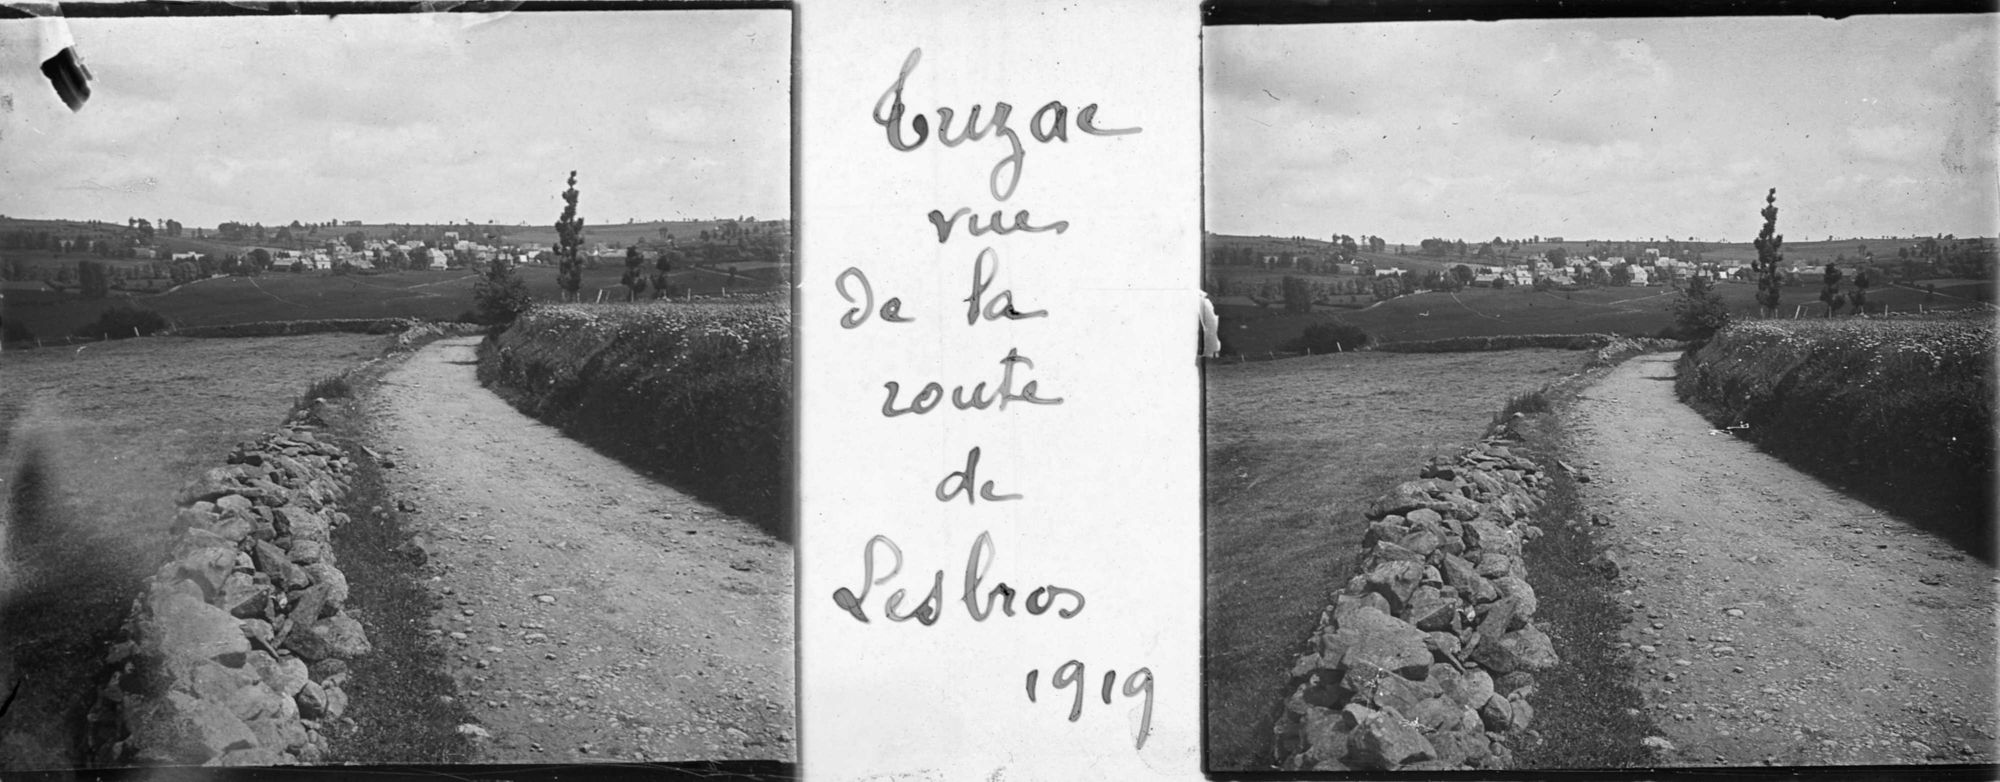 Truzac
vue
de la
route
de
Lesbros
1919